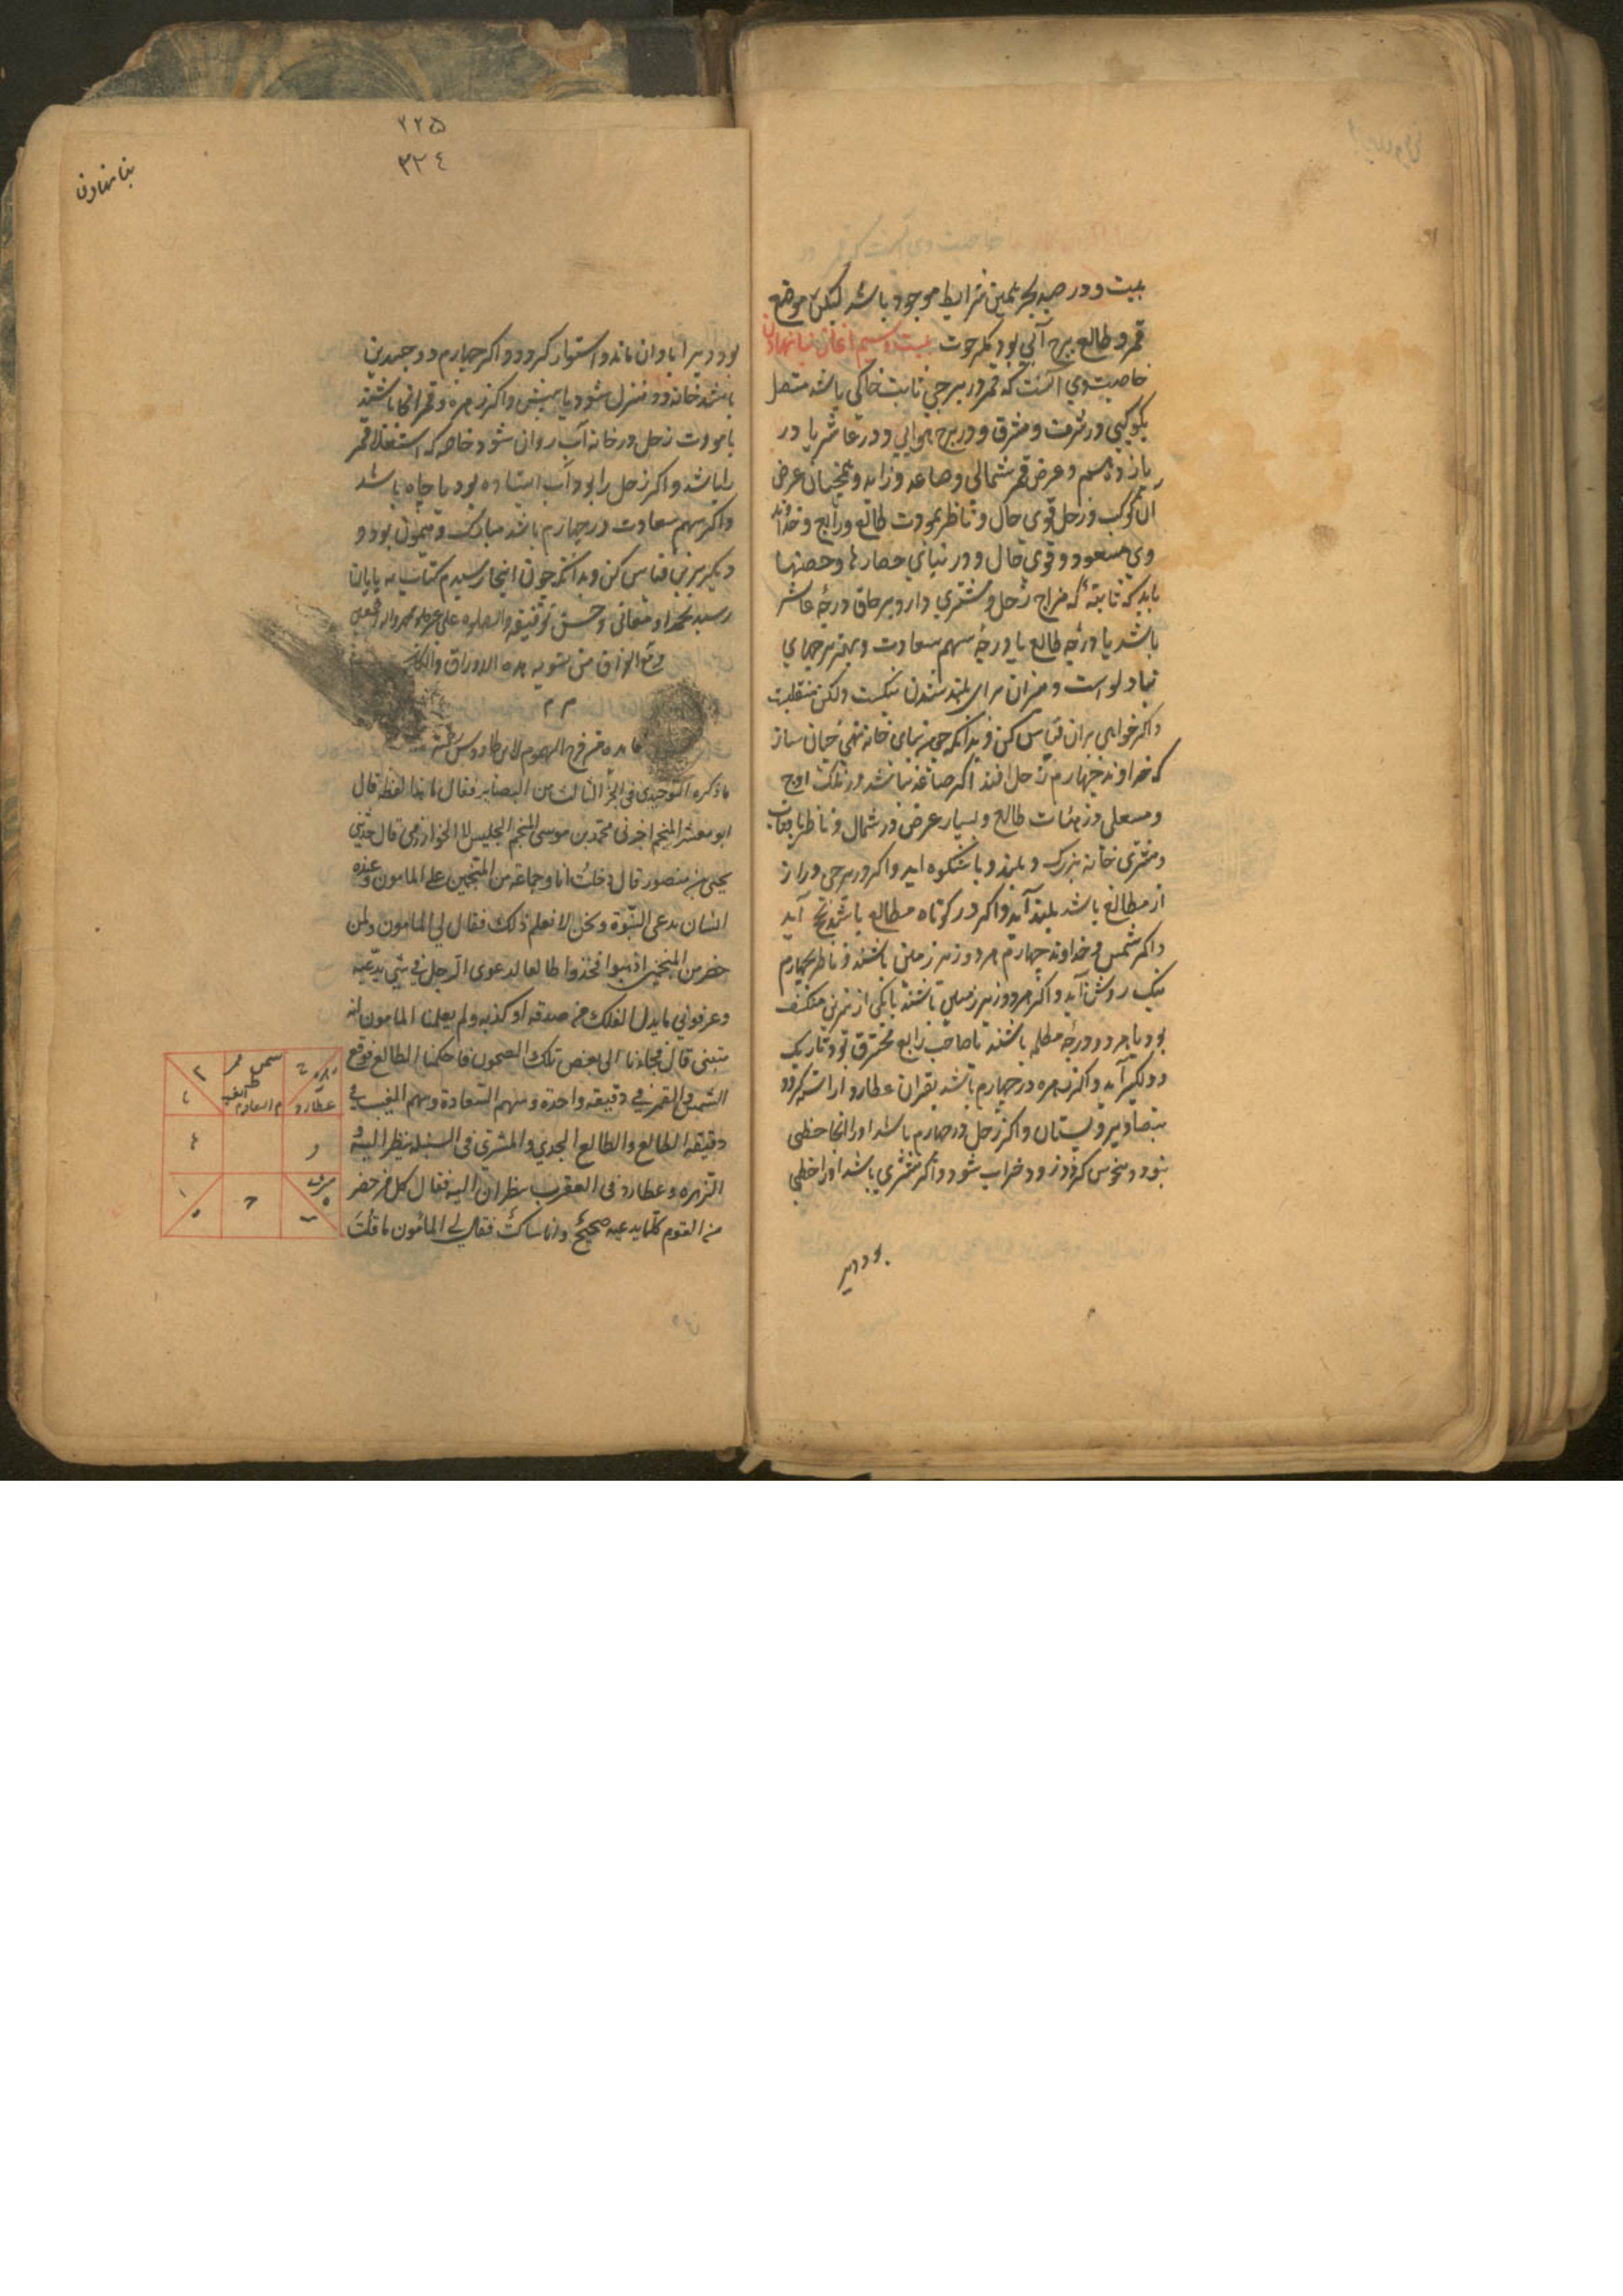 بیت و در صید بحر همین شرایط موجود باشد لیکن موضع
قمر و طالع برج آبی بود مگر حوت بیست و سیم آغاز بنا نهادن
خاصیت وی آنست که قمر در برجی ثابت خاکی باشد متصل
بکوکبی در شرف و مشرق و در برج هوایی و در عاشر یا در
یازدهم و عرض قمر شمالی و صاعد و زاید و همچنان عرض
آن کوکب و زحل قوی حال و ناظر بمودت طالع و رابع و خداوند
وی مسعود و قوی حال و در بنای حصارها و حصنها
باید که ثابتهٔ که مزاج زحل و مشتری دارد بر حاق درجهٔ عاشر
باشد یا درجهٔ طالع یا درجهٔ سهم سعادت و بهتر برجهای
بنا دلو است و میزان برای بلند شدن نیکست ولکن منقلبت
و اگر خواهی بران قیاس کن و بدانکه چون بنای خانه نهی چنان ساز
که خداوند چهارم زحل افتد اگر صاعد باشد در فلک اوج
و مستعلی و زمینات طالع و بسیار عرض در شمال و ناظر بافتاب
و مشتری خانه بزرگ و بلند و با شکوه آید و اگر در برجی دراز
از مطالع باشد بلند آید و اگر در کوتاه مطالع باشد آید
و اگر شمس و خداوند چهارم هر دو زبر زمین باشند و ناظر بچهارم
نیک روشن آید و اگر هر دو زیر زمین باشند یا یکی از نیرین منکسف
بود یا هر دو در درجهٔ مظلم باشند یا صاحب رابع محترق بود تاریک
و دلگیر آید و اگر زهره در چهارم باشد بقران عطارد آراسته گردد
بتصاویر و بستان و اگر زحل در چهارم باشد او را آنجا حظی
نبود و منحوس گردد زود خراب شود و اگر مشتری باشد او را حظی
بود دیر
٢٢٥
٣٢٤
بنا نهادن
بود دیر آبادان ماند و استوار گردد و اگر چهارم ذو جسدین
باشد خانه دو منزل شود یا بیش و اگر زهره و قمر آنجا باشند
با مودت زحل در خانه آب روان شود خاصه که استعلا قمر
را باشد و اگر زحل را بود آب ایستاده بود یا چاه باشد
و اگر سهم سعادت در چهارم باشد مبارک و میمون بود و
دیگر برین قیاس کن و بدانکه چون اینجا رسیدم کتاب به پایان
رسید بحمد الله تعالی و حسن توفیقه والصلوه علی محمد واله
وقع الفراغ من تسوید هذه الاوراق
فایده من فرج المهموم لابن طاووس
ما ذکره التوحیدی فی الجزء الثالث من البصایر فقال ما هذا لفظه قال
ابو معشر المنجم اخبرنی محمد بن موسی المنجم الجلیس لا الخوارزمی قال حدثنی
یحیی بن منصور قال دخلت انا و جماعة من المنجمین علی المامون وعنده
انسان یدعی النبوة ونحن لا نعلم ذلک فقال لی المامون ولمن
حضر من المنجمین اذهبوا فخذوا طالعا لدعوی الرجل فی شی یدعیه
وعرفونی ما یدل الفلک من صدقه او کذبه ولم یعلمنا المامون انه
متنبی قال فجاءنا الی بعض تلک الصحون فاحکمنا الطالع فوقع
الشمس والقمر فی دقیقه واحدة وسهم السعادة وسهم الغیب فی
دقیقة الطالع والطالع الجدی والمشتری فی السنبله ینظر الیه و
الزهره وعطارد فی العقرب ینظران الیه فقال کل من حضر
من القوم کلما یدعیه صحیح وانا ساکت فقال لی المأمون ما قلتَ
زهره
عطارد
شمس قمر
الغیب
م السعاده